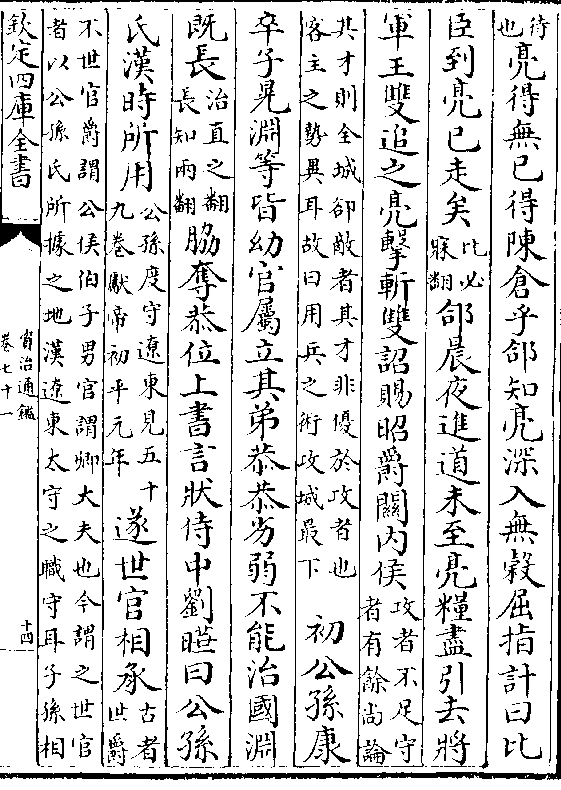 待也亮得無已得陳倉乎郃知亮深入無穀屈指計曰比
臣到亮已走矣比必寐翻郃晨夜進道未至亮糧盡引去將
軍王雙追之亮擊斬雙詔賜昭爵關内侯攻者不足守者有餘尚論
其才則全城卻敵者其才非優於攻者也客主之勢異耳故曰用兵之術攻城最下初公孫康
卒子晃淵等皆幼官屬立其弟恭恭劣弱不能治國淵
既長治直之翻長知兩翻脇奪恭位上書言狀侍中劉曄曰公孫
氏漢時所用公孫度守遼東見五十九卷獻帝初平元年遂世官相承古者世爵
不世官爵謂公侯伯子男官謂卿大夫也今謂之世官者以公孫氏所據之地漢遼東太守之職守耳子孫相
欽定四庫全書
資治通鑑
卷七十一
十四